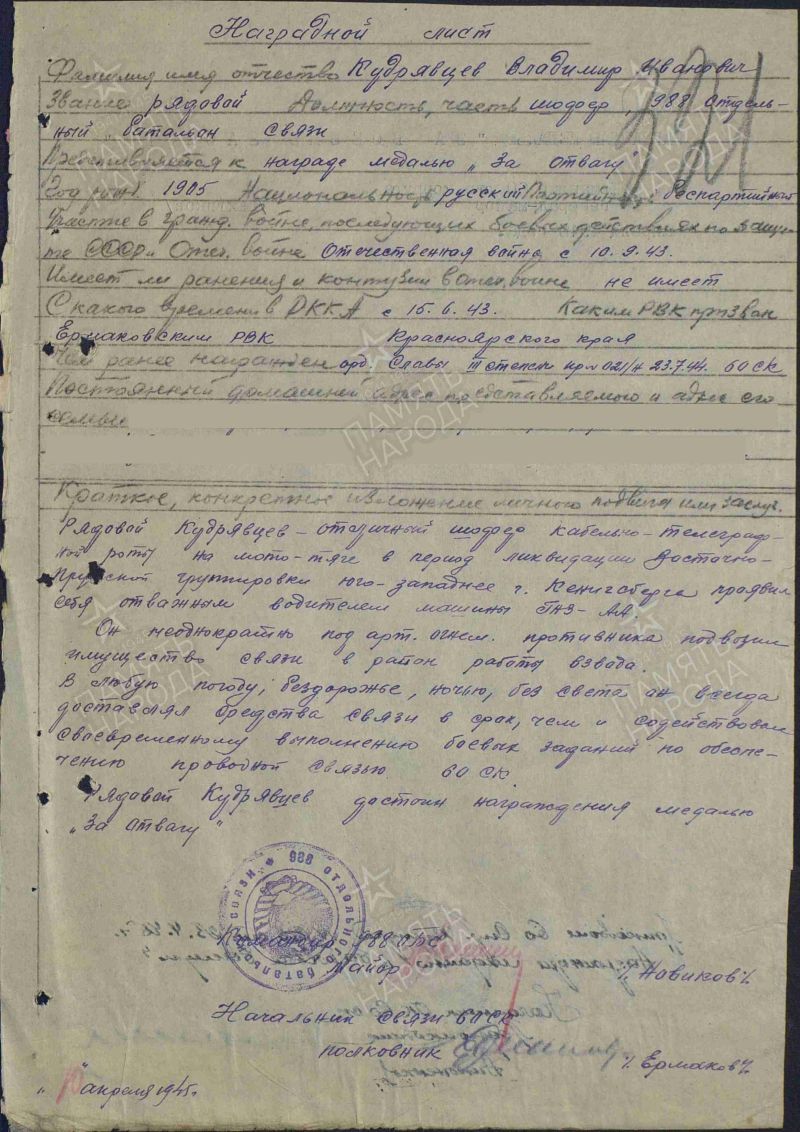 Наградной лист
Фамилия имя отчество Кудрявцев Владимир Иванович
Звание рядовой Должность, часть шофер, 988 отдель-
ный батальон связи
Представляется к награде медалью „За отвагу"
Год рожд. 1905 Национальность русский Партийность беспартийный
Участие в гражд. войне, последующих боевых действиях по защи-
те СССР и Отеч. войне Отечественная война с 10.9.43.
Имеет ли ранения и контузии в отеч. войне не имеет
С какого времени в РККА с 15.6.43. Каким РВК призван
Ермаковским РВК Красноярского края
Чем ранее награжден орд. Славы III степени пр. 021/н 23.7.44. 60 СК
Постоянный домашний адрес представляемого и адрес его
семьи
Краткое, конкретное изложение личного подвига или заслуг.
Рядовой Кудрявцев – отличный шофер кабельно-телеграф-
ной роты на мото-тяге в период ликвидации Восточно-
Прусской группировки юго-западнее г. Кенигсберга проявил
себя отважным водителем машины ГАЗ-АА.
Он неоднократно под арт. огнем противника подвозил
имущество связи в район работы взвода.
В любую погоду, бездорожье, ночью, без света он всегда
доставлял средства связи в срок, чем и содействовал
своевременному выполнению боевых заданий по обеспе-
чению проводной связью 60 СК
Рядовой Кудрявцев достоин награждения медалью
„За отвагу"
988 отдельного батальона связи
Командир 988 ОБС
Майор /Новиков/
Начальник связи 60 СК
полковник /Ермаков/
„10" апреля 1945г.
321
ПАМЯТЬ НАРОДА